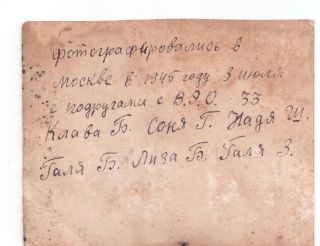 Фотографировались в
Москве в 1945 году 3 июля
с подругами с В.Э.О. 33
Клава Б. Соня Г. Надя Ш.
Галя Б. Лиза Б. Галя З.